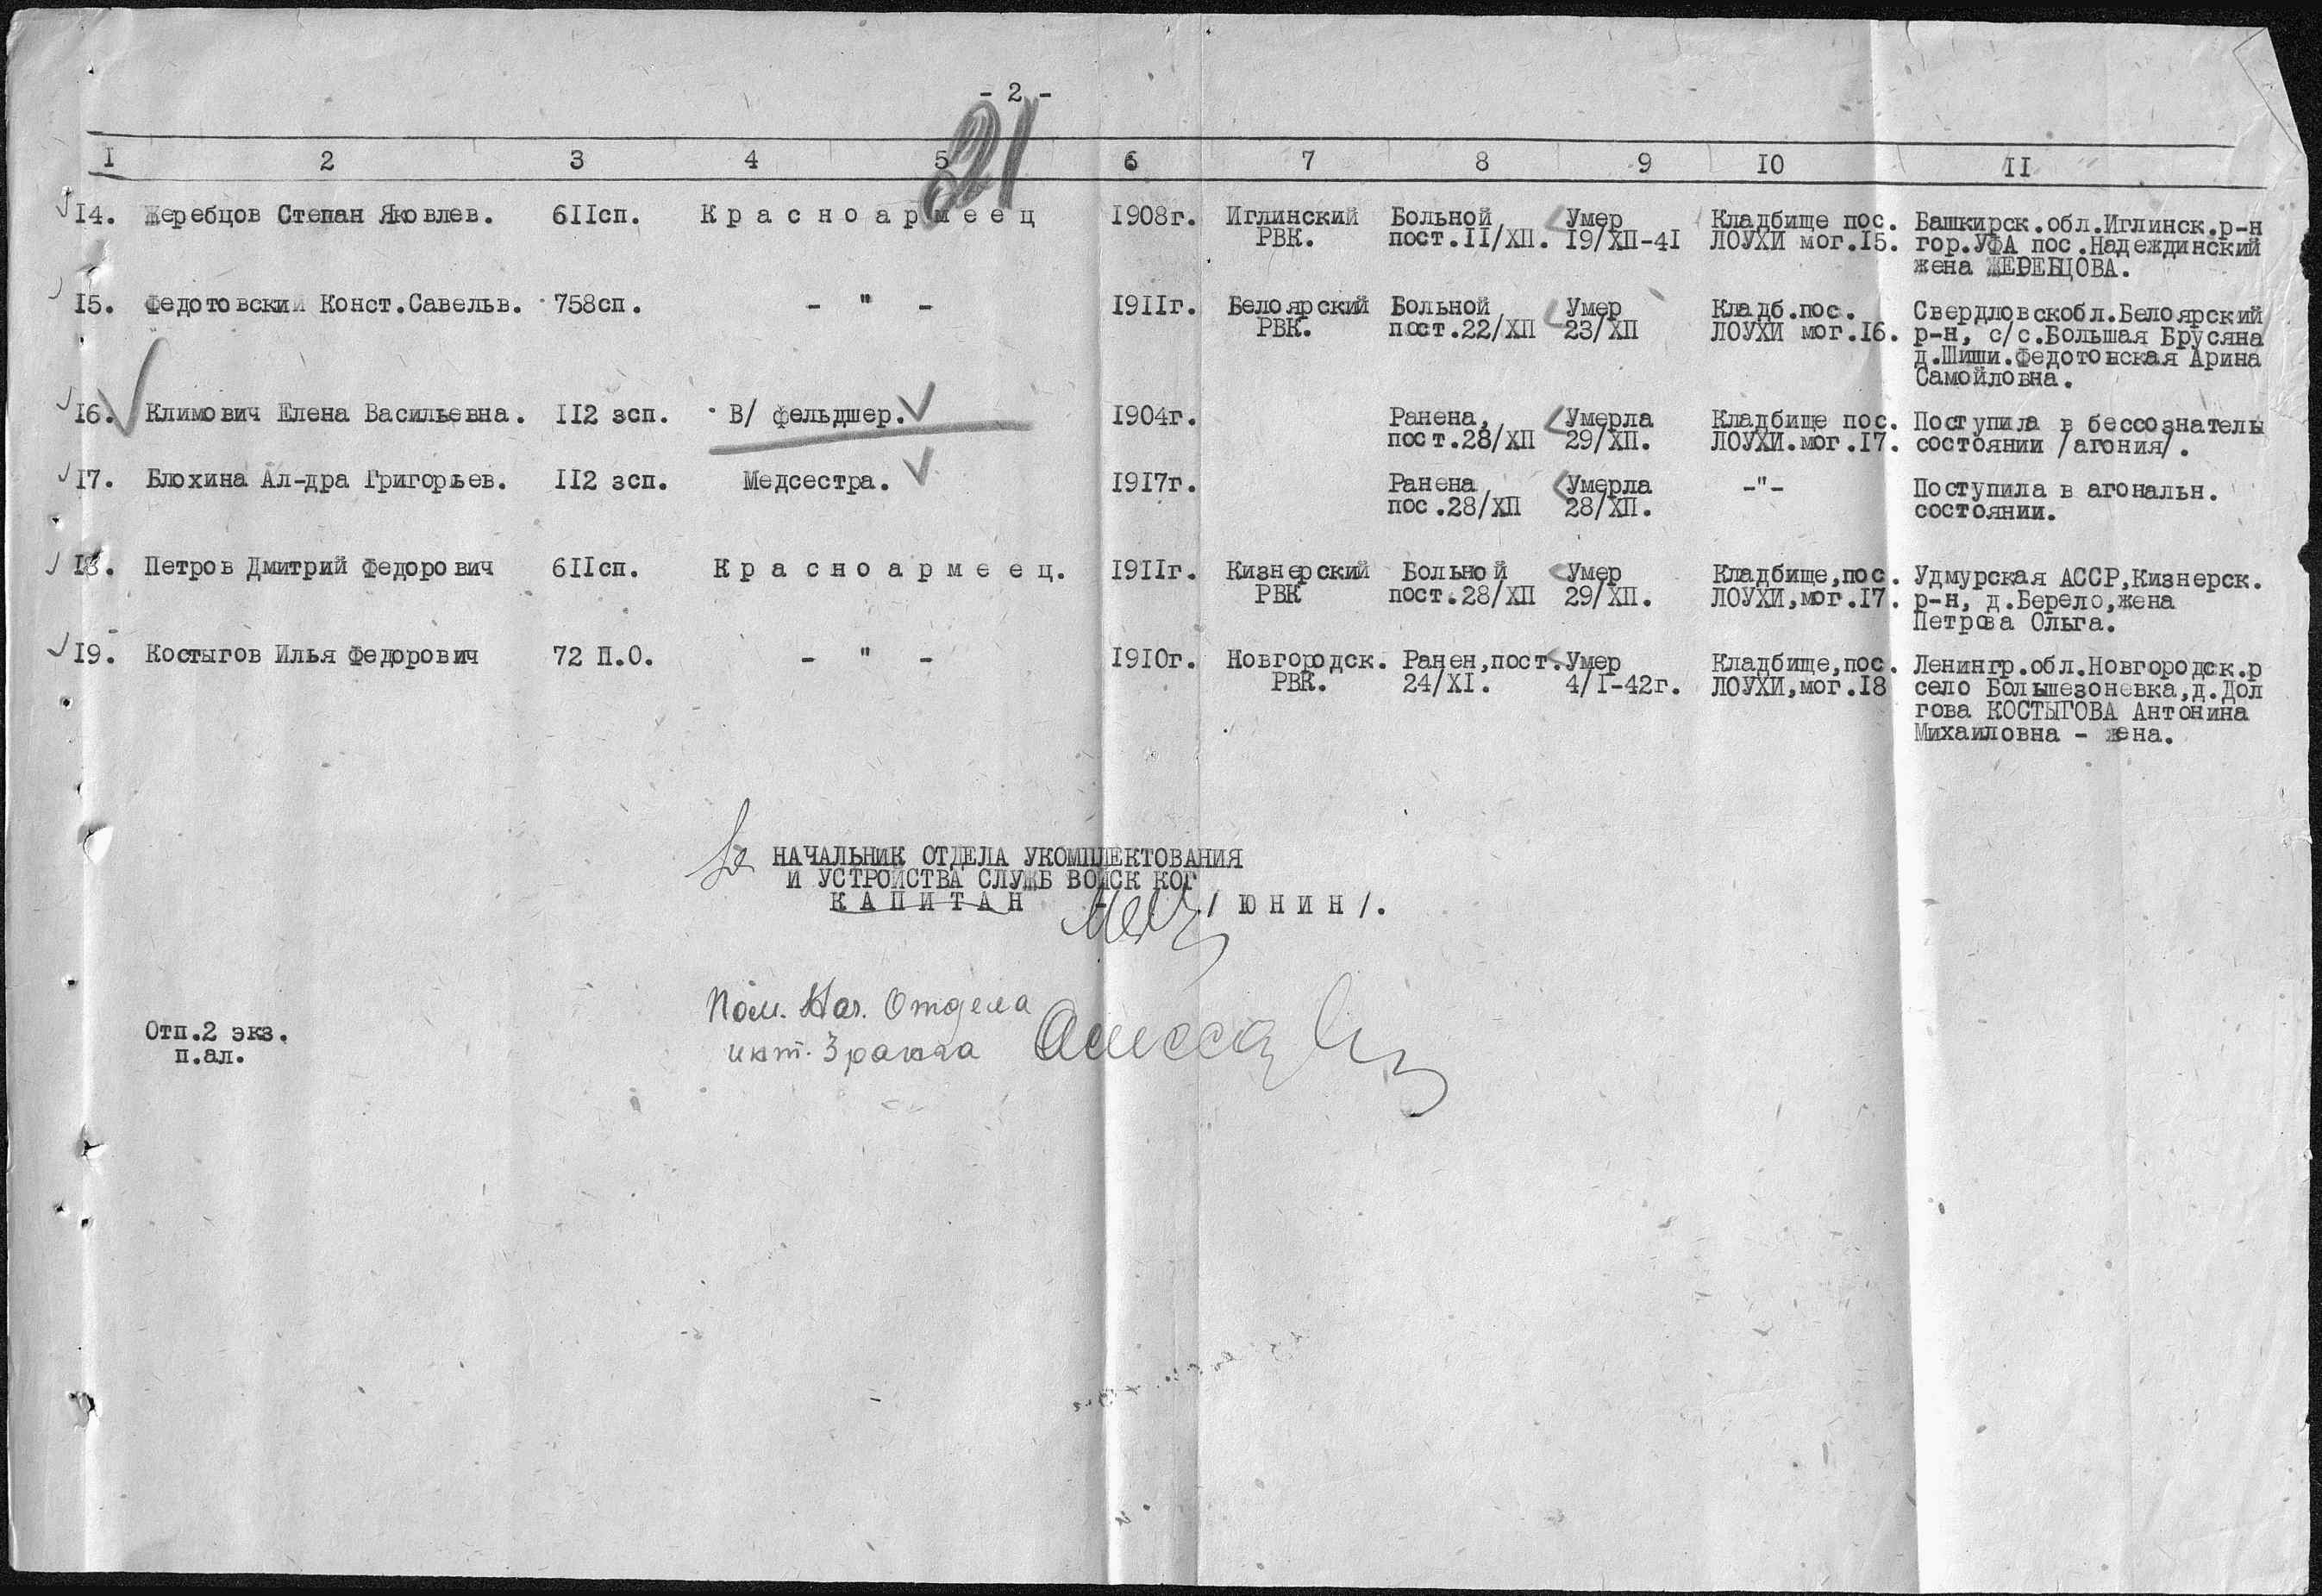 - 2 -
21
I 2 3 4 5 6 7 8 9 IO II
I4. Жеребцов Степан Яковлев. 6IIсп. К р а с н о а р м е е ц I908г. Иглинский Больной Умер Кладбище пос. Башкирск.обл.Иглинск.р-н
РВК. пост.II/XII. I9/XII-4I ЛОУХИ мог.I5. гор.УФА пос.Надеждинский
жена ЖЕРЕБЦОВА.
I5. Федотовский Конст.Савельв. 758сп. - " - I9IIг. Белоярский Больной Умер Кладб.пос. Свердловскобл.Белоярский
РВК. пост.22/XII 23/XII ЛОУХИ мог.I6. р-н, с/с.Большая Брусяна
д.Шиши.Федотовская Арина
Самойловна.
I6. Климович Елена Васильевна. II2 зсп. В/ фельдшер. I904г. Ранена, Умерла Кладбище пос. Поступила в бессознателы
пост.28/XII 29/XII. ЛОУХИ.мог.I7. состоянии /агония/.
I7. Блохина Ал-дра Григорьев. II2 зсп. Медсестра. I9I7г. Ранена Умерла -"- Поступила в агональн.
пос.28/XII 28/XII. состоянии.
I8. Петров Дмитрий Федорович 6IIсп. К р а с н о а р м е е ц. I9IIг. Кизнерский Больной Умер Кладбище,пос. Удмурская АССР,Кизнерск.
РВК пост.28/XII 29/XII. ЛОУХИ,мог.I7. р-н, д.Берело,жена
Петрова Ольга.
I9. Костыгов Илья Федорович 72 П.О. - " - I9I0г. Новгородск. Ранен,пост. Умер Кладбище,пос. Ленингр.обл.Новгородск.р
РВК. 24/XI. 4/I-42г. ЛОУХИ,мог.I8 село Большезоневка,д.Дол
гова КОСТЫГОВА Антонина
Михаиловна - жена.
За НАЧАЛЬНИК ОТДЕЛА УКОМПЛЕКТОВАНИЯ
И УСТРОЙСТВА СЛУЖБ ВОЙСК КОГ
К А П И Т А Н - / Ю Н И Н /.
Пом. Нач. Отдела
инт. 3 ранга
Отп.2 экз.
п.ал.